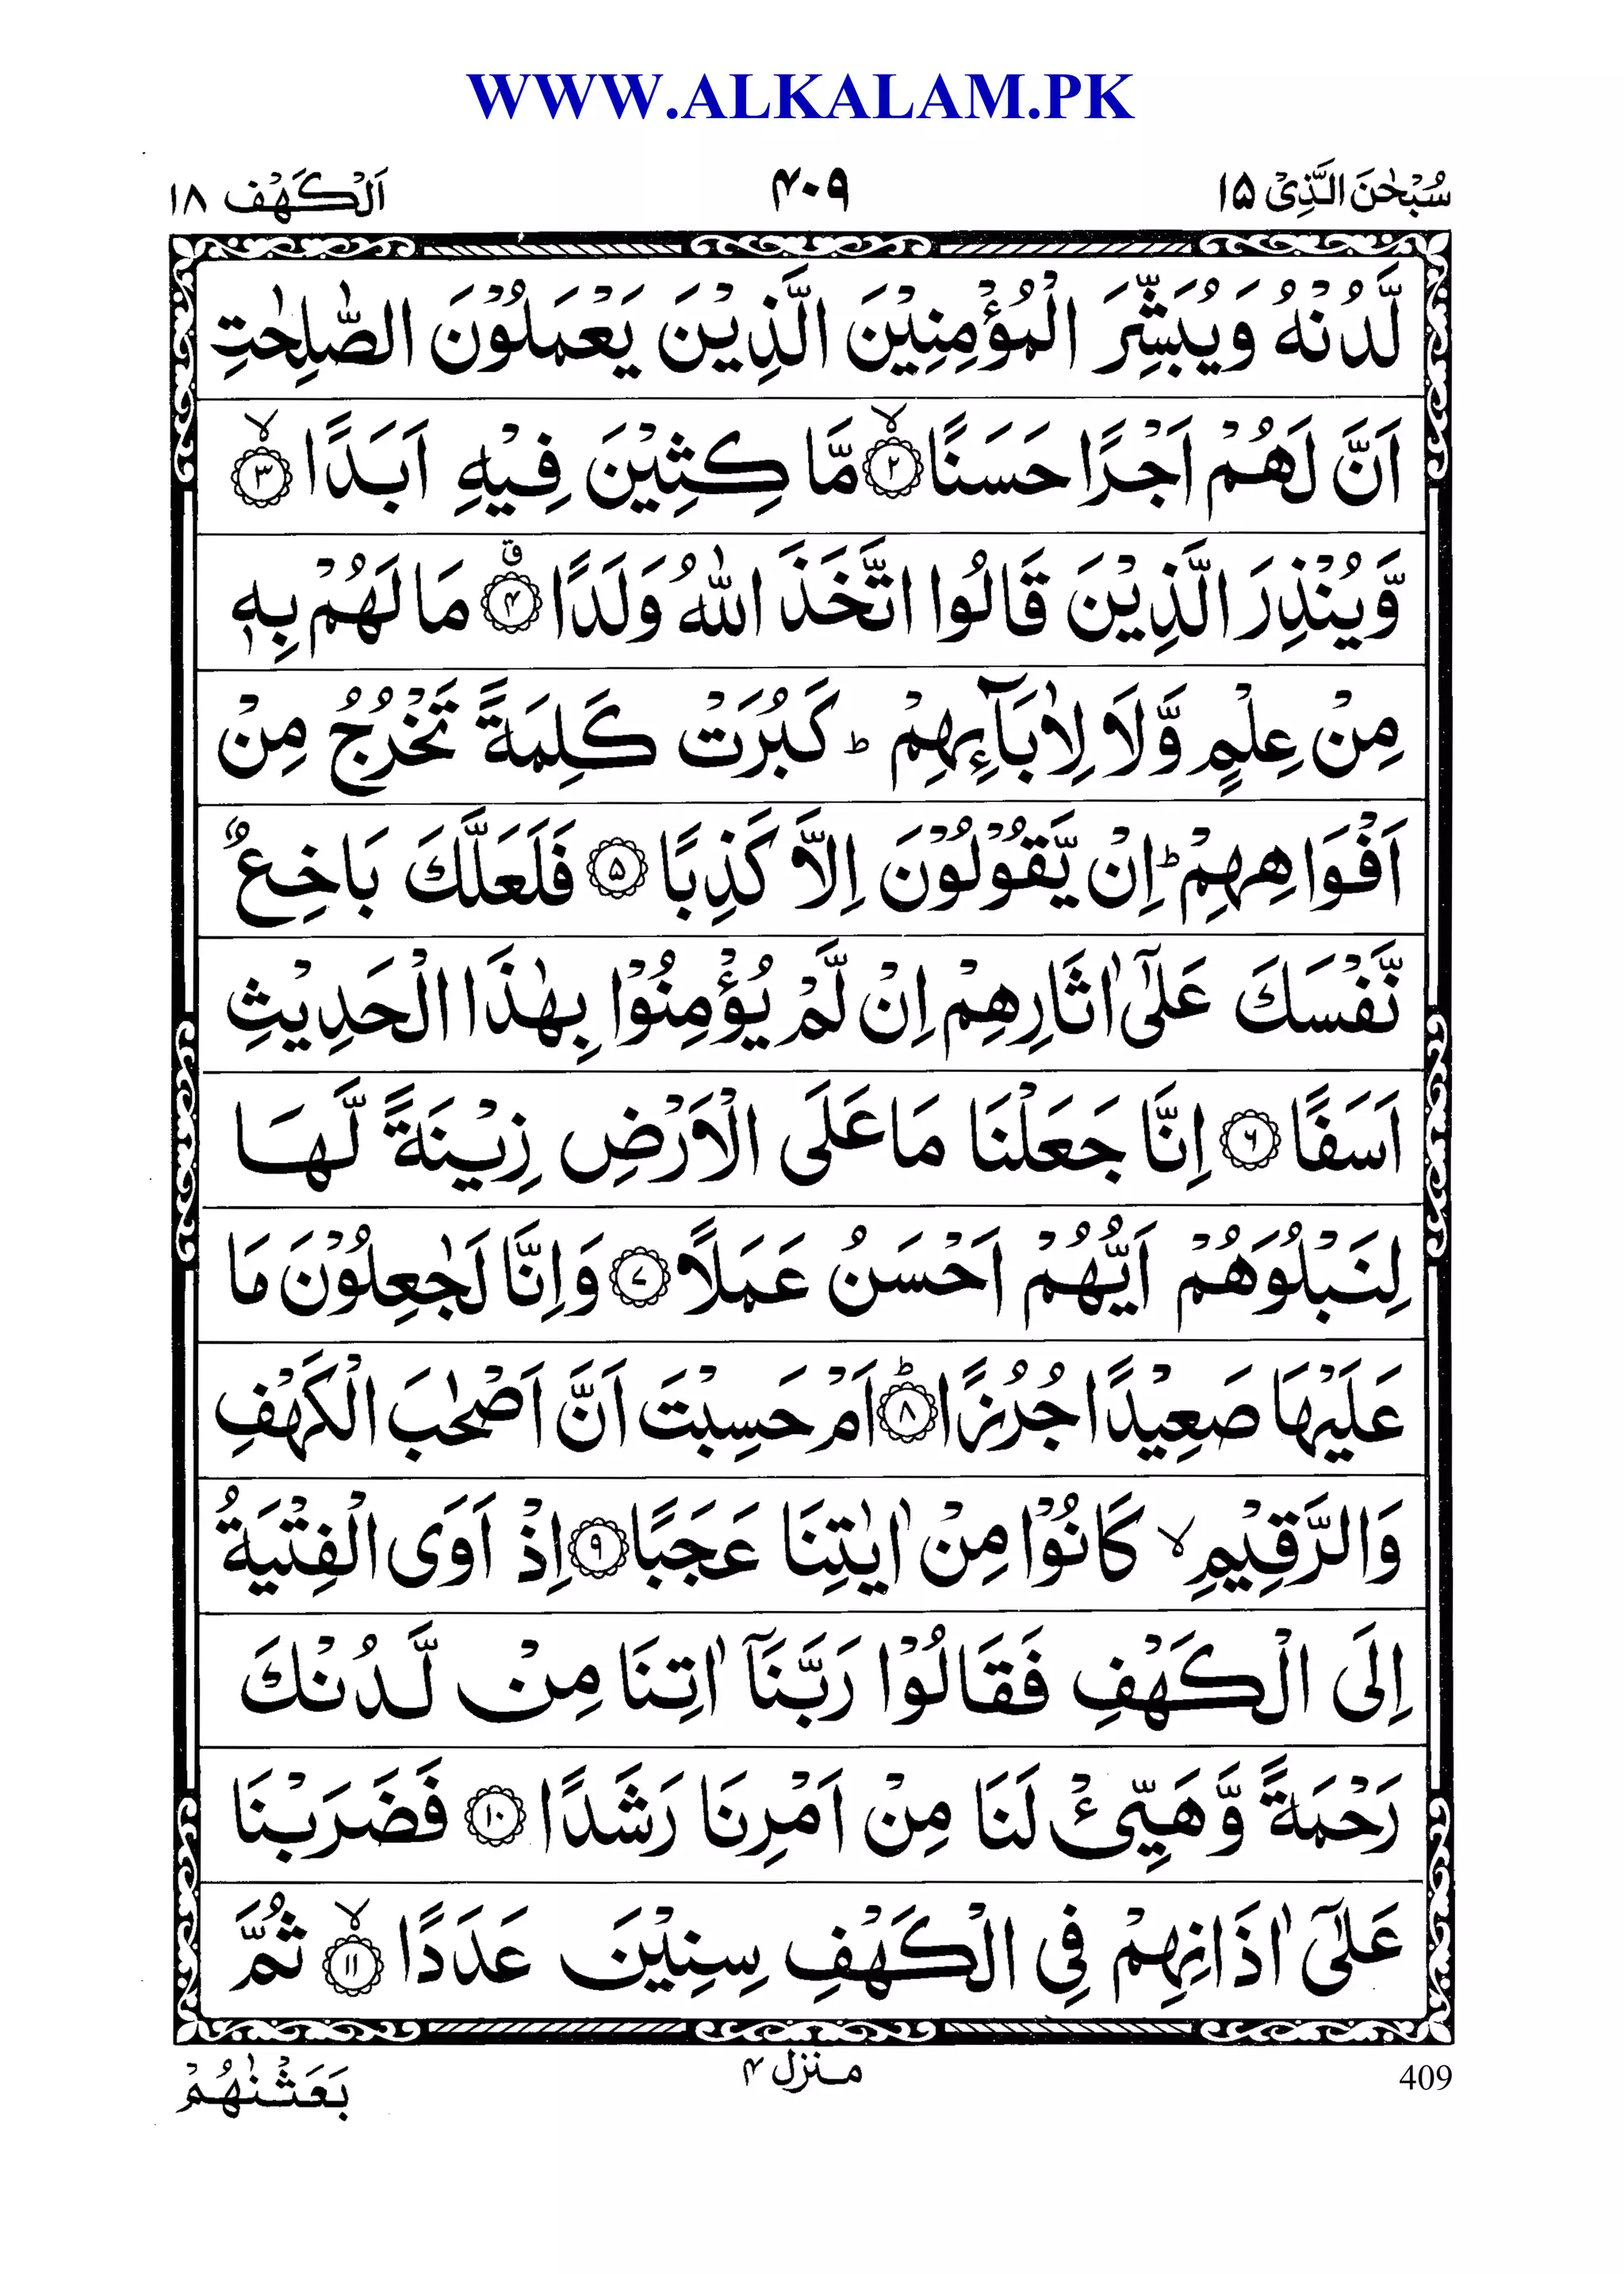 WWW.ALKALAM.PK
سُبْحٰنَ الَّذِیْ ۱۵ ۴۰۹ اَلْكَهْف ۱۸
لَّدُنْهُ وَ یُبَشِّرَ الْمُؤْمِنِیْنَ الَّذِیْنَ یَعْمَلُوْنَ الصّٰلِحٰتِ
اَنَّ لَهُمْ اَجْرًا حَسَنًا ۲ۙ مَّا كِثِیْنَ فِیْهِ اَبَدًا ۳ۙ
وَّ یُنْذِرَ الَّذِیْنَ قَالُوا اتَّخَذَ اللّٰهُ وَلَدًا ۴ق مَا لَهُمْ بِهٖ
مِنْ عِلْمٍ وَّ لَا لِاٰبَآىِٕهِمْ ؕ كَبُرَتْ كَلِمَةً تَخْرُجُ مِنْ
اَفْوَاهِهِمْ ؕ اِنْ یَّقُوْلُوْنَ اِلَّا كَذِبًا ۵ فَلَعَلَّكَ بَاخِعٌ
نَّفْسَكَ عَلٰۤى اٰثَارِهِمْ اِنْ لَّمْ یُؤْمِنُوْا بِهٰذَا الْحَدِیْثِ
اَسَفًا ۶ اِنَّا جَعَلْنَا مَا عَلَى الْاَرْضِ زِیْنَةً لَّهَا
لِنَبْلُوَهُمْ اَیُّهُمْ اَحْسَنُ عَمَلًا ۷ وَ اِنَّا لَجٰعِلُوْنَ مَا
عَلَیْهَا صَعِیْدًا جُرُزًا ۸ؕ اَمْ حَسِبْتَ اَنَّ اَصْحٰبَ الْكَهْفِ
وَ الرَّقِیْمِ ۙ كَانُوْا مِنْ اٰیٰتِنَا عَجَبًا ۹ اِذْ اَوَى الْفِتْیَةُ
اِلَى الْكَهْفِ فَقَالُوْا رَبَّنَاۤ اٰتِنَا مِنْ لَّدُنْكَ
رَحْمَةً وَّ هَیِّئْ لَنَا مِنْ اَمْرِنَا رَشَدًا ۱۰ فَضَرَبْنَا
عَلٰۤى اٰذَانِهِمْ فِی الْكَهْفِ سِنِیْنَ عَدَدًا ۱۱ۙ ثُمَّ
409 منزل ۴ بَعَثْنٰهُمْ